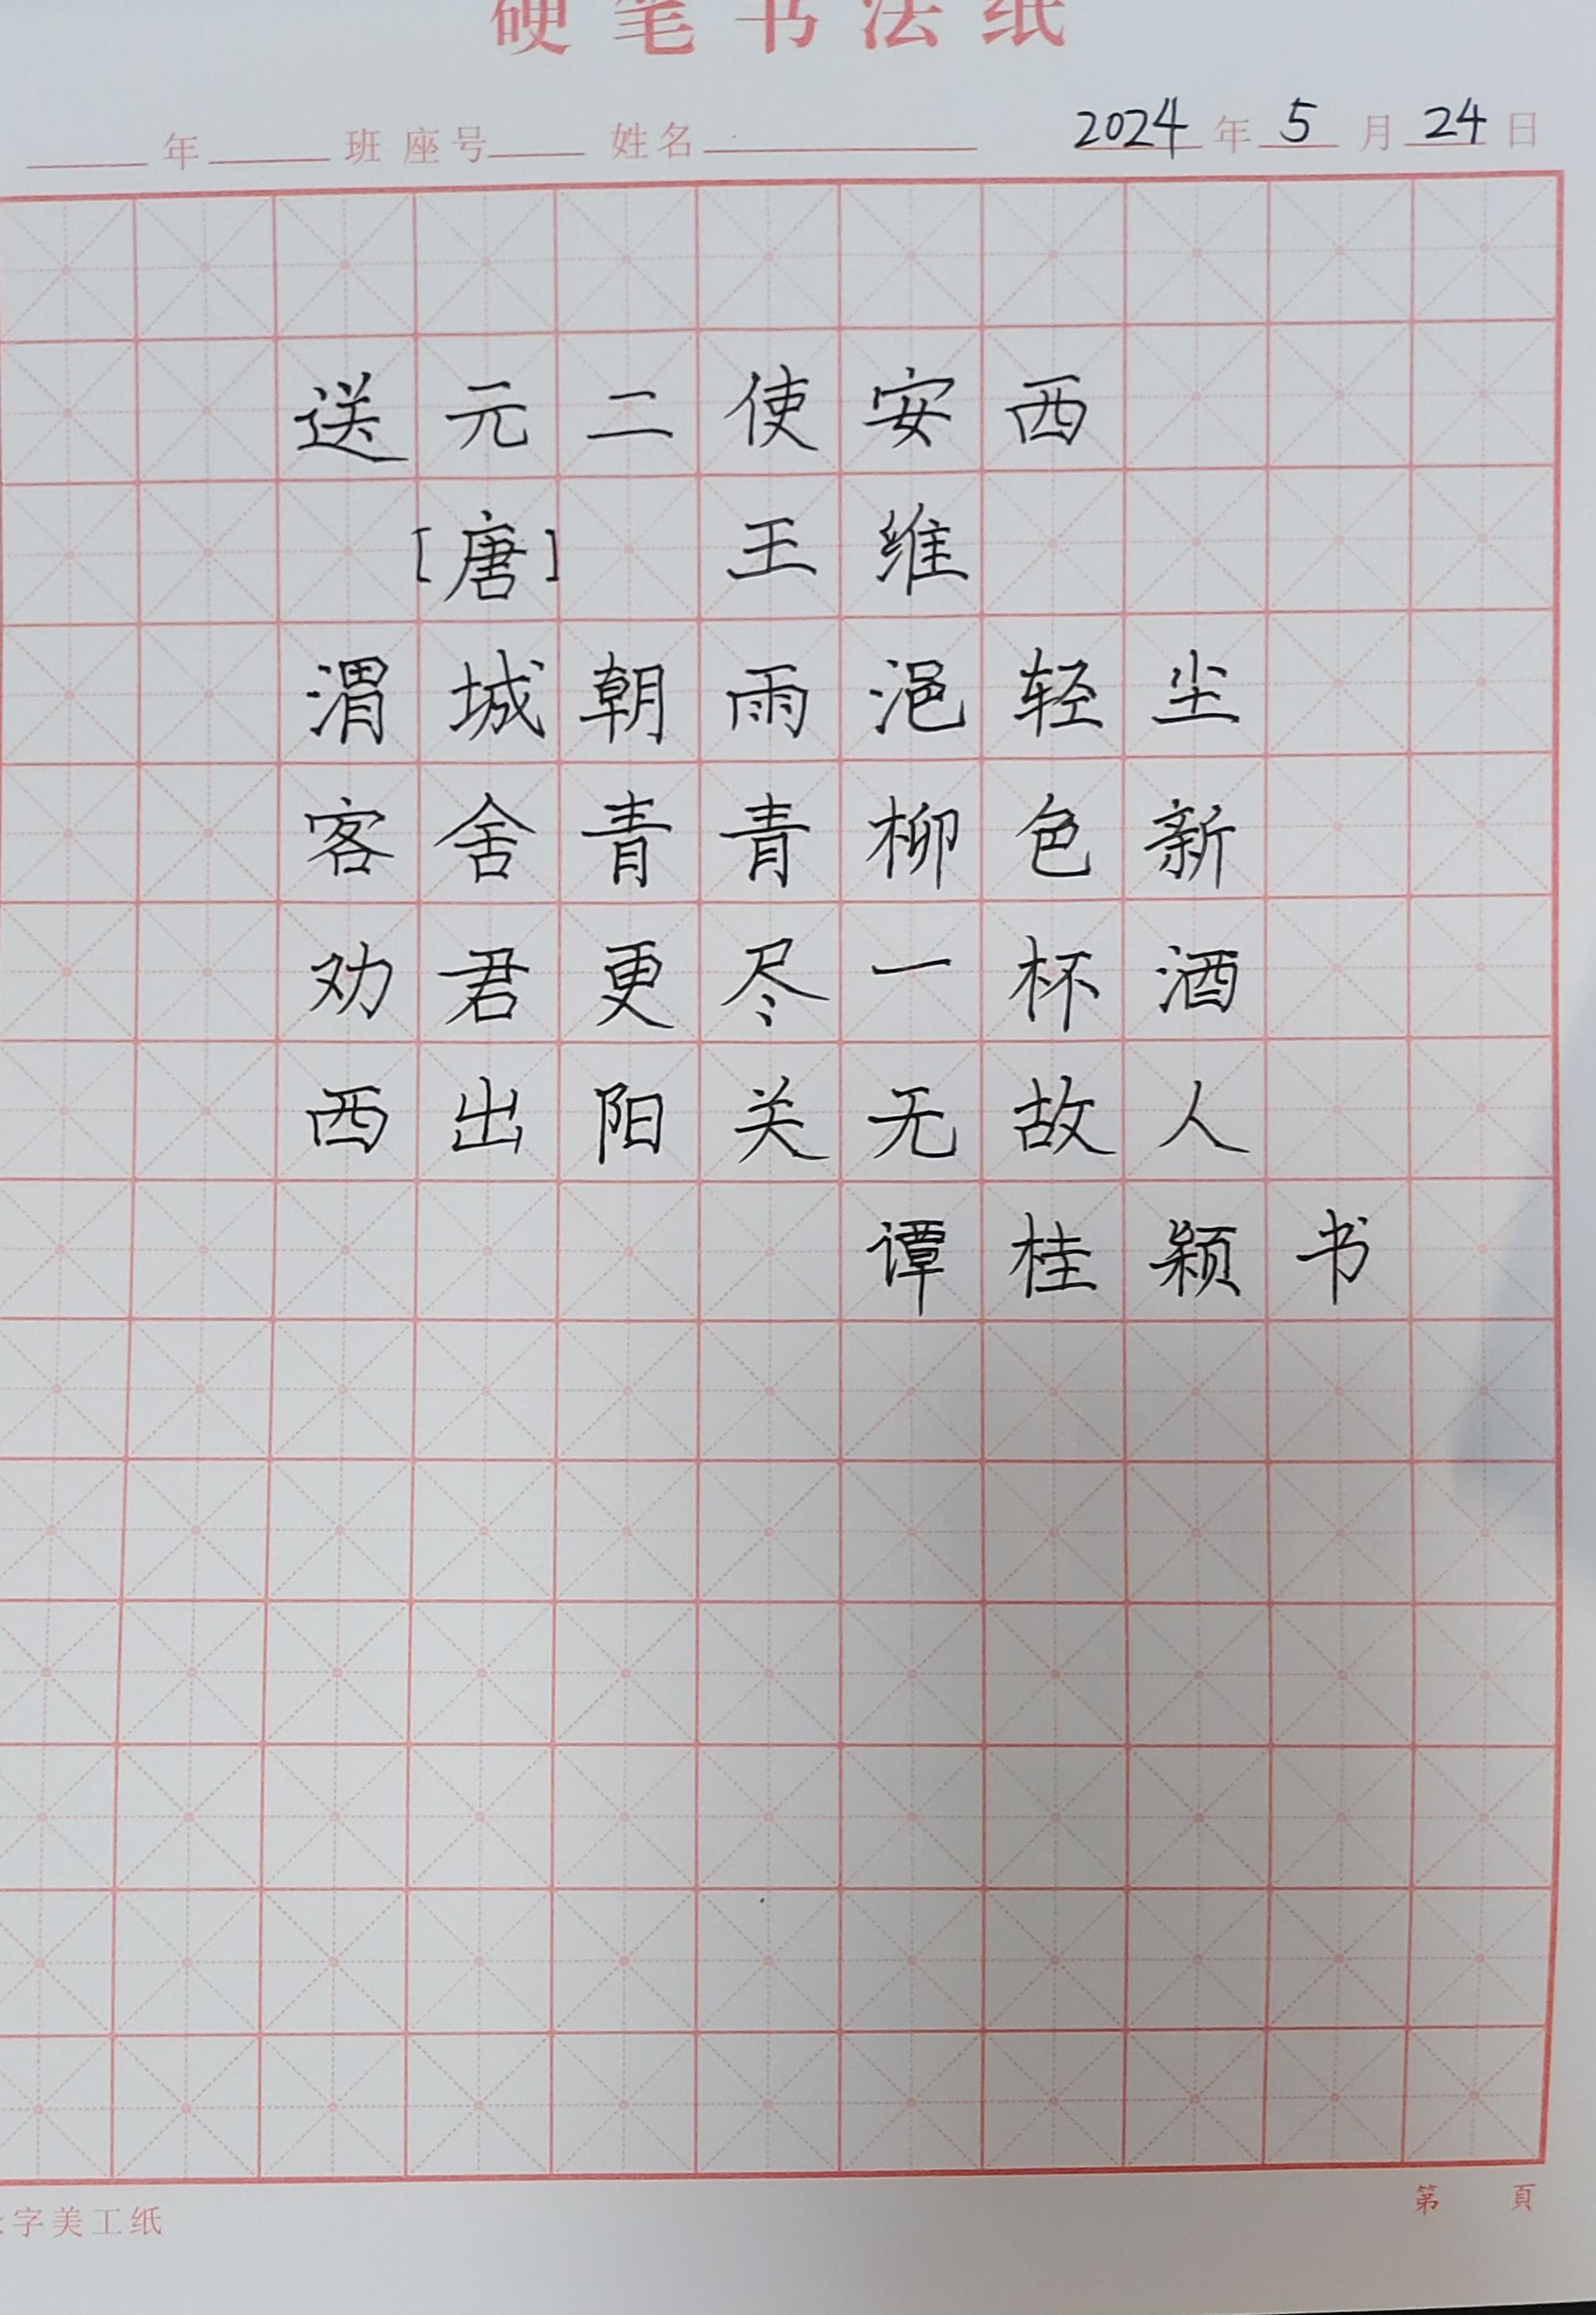 硬笔书法纸
年 班 座号 姓名 2024 年 5 月 24 日
送元二使安西
[唐] 王维
渭城朝雨浥轻尘
客舍青青柳色新
劝君更尽一杯酒
西出阳关无故人
谭桂颖书
字美工纸 第 頁